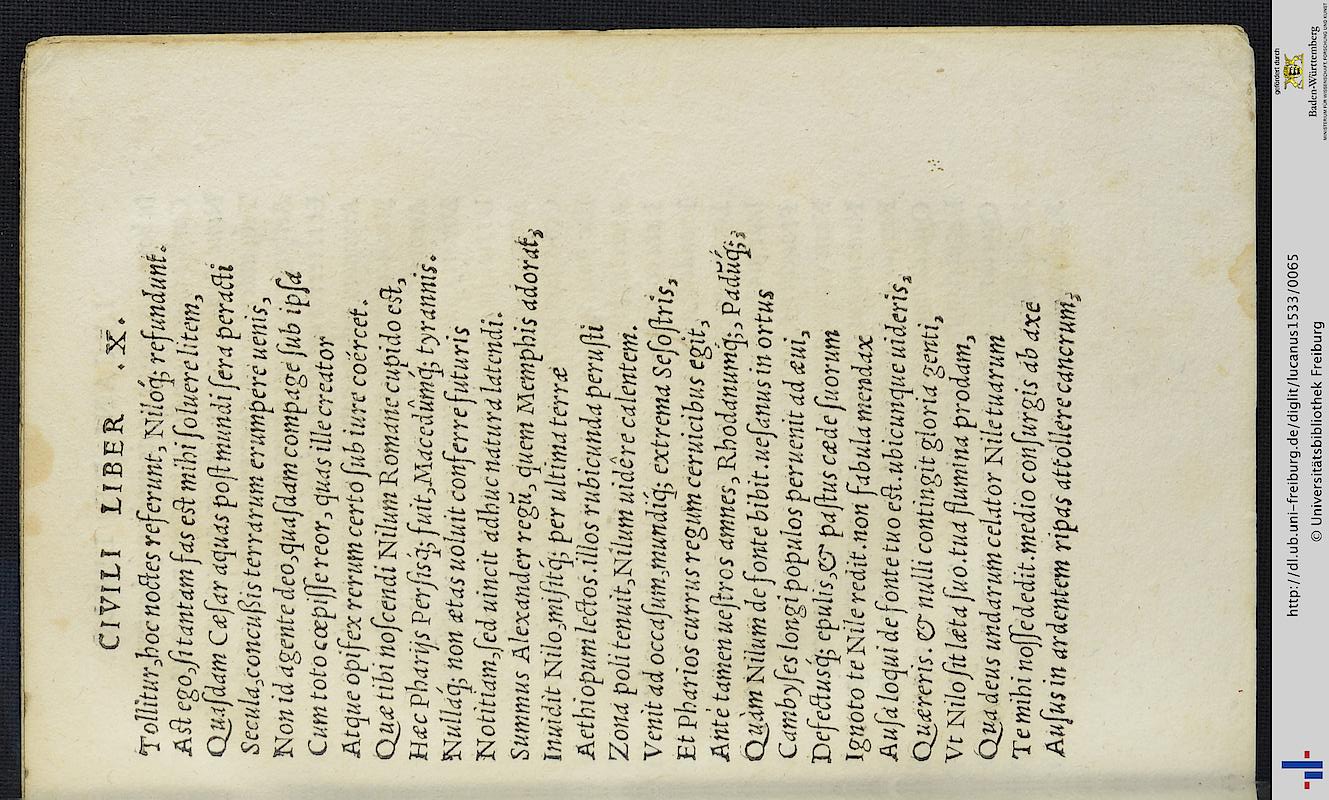 CIVILI LIBER .X.
Tollitur, hoc noctes referunt, Niloq; refundunt.
Ast ego, si tantam fas est mihi soluere litem,
Quasdam Cæsar aquas post mundi sera peracti
Secula, concussis terrarum erumpere uenis,
Non id agente deo, quasdam compage sub ipsa
Cum toto cœpisse reor, quas ille creator
Atque opifex rerum certo sub iure coércet.
Quæ tibi noscendi Nilum Romane cupido est,
Hæc Pharijs Persisq; fuit, Macedûmq́; tyrannis.
Nullaq́; non ætas uoluit conferre futuris
Notitiam, sed uincit adhuc natura latendi.
Summus Alexander regū, quem Memphis adorat,
Inuidit Nilo, misitq́; per ultima terræ
Aethiopum lectos. illos rubicunda perusti
Zona poli tenuit, Nilum uidêre calentem.
Venit ad occasum, mundiq́; extrema Sesostris,
Et Pharios currus regum ceruicibus egit,
Ante tamen uestros amnes, Rhodanumq́;, Padūq́;,
Quàm Nilum de fonte bibit. uesanus in ortus
Cambyses longi populos peruenit ad æui,
Defectusq́; epulis, & pastus cæde suorum
Ignoto te Nile redit. non fabula mendax
Ausa loqui de fonte tuo est. ubicunque uideris,
Quæreris. & nulli contingit gloria genti,
Vt Nilo sit læta suo. tua flumina prodam,
Qua deus undarum celator Nile tuarum
Te mihi nosse dedit. medio consurgis ab axe
Ausus in ardentem ripas attollere cancrum,
gefördert durch
Baden-Württemberg
MINISTERIUM FÜR WISSENSCHAFT, FORSCHUNG UND KUNST
http://dl.ub.uni-freiburg.de/diglit/lucanus1533/0065
© Universitätsbibliothek Freiburg